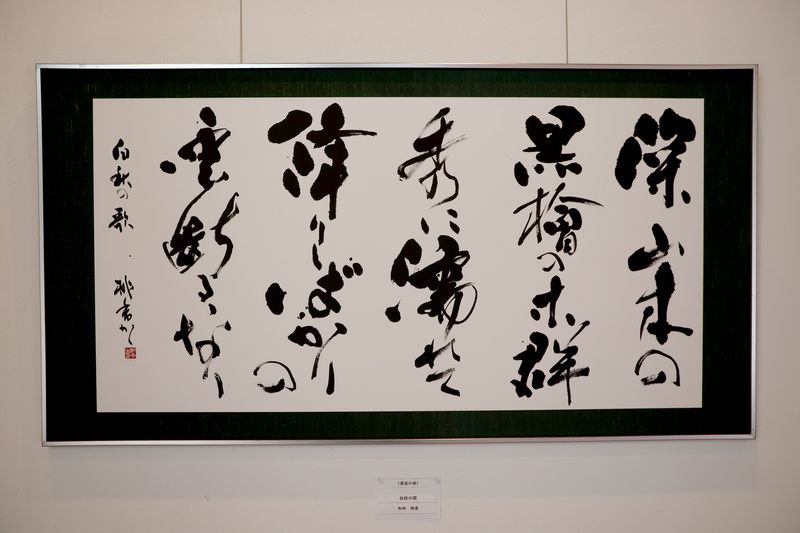 深山木の
黒檜の木群
秀に濡れて
降りしばかりの
雲断るゝなり
白秋の歌
(書道の部)
白秋の歌